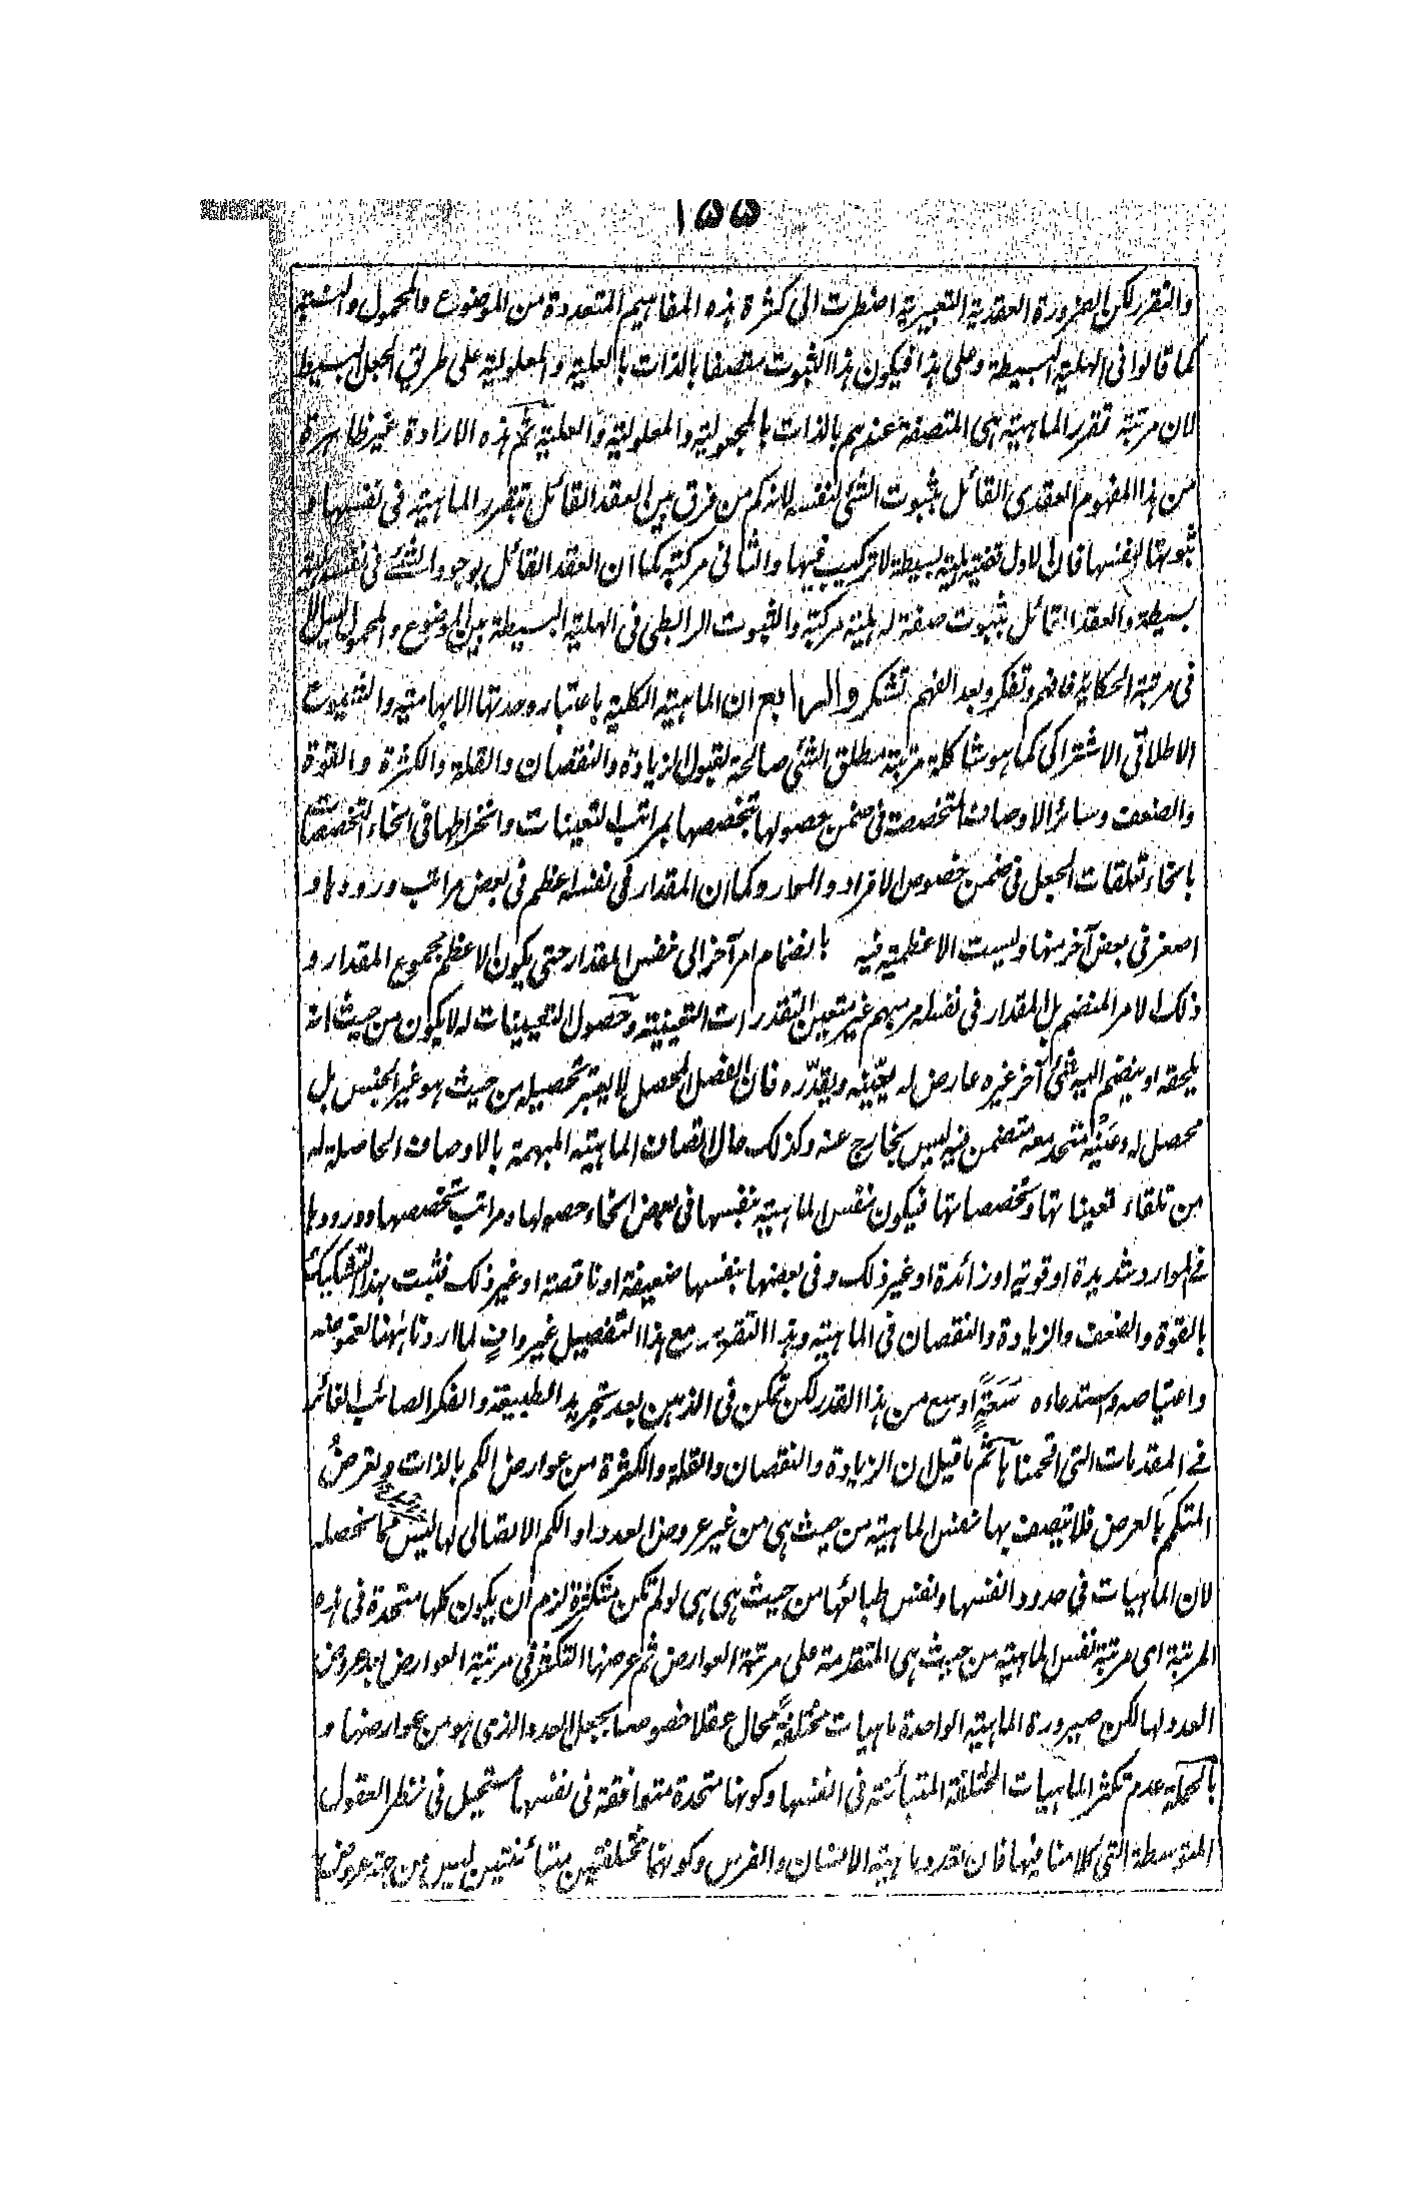 ١٥٥
والتقرر لكن الضرورة العقدية التعبيرية اضطرت الى كثرة هذه المفاهيم المتعددة من الموضوع والمحمول والنسبة
كما قالوا فى الهلية البسيطة وعلى هذا فيكون هذا الثبوت متصفا بالذات بالعلية والمعلولية على طريق الجعل البسيط
لان مرتبة تقرر الماهية هى المتصفة عندهم بالذات بالمجعولية والمعلولية والعلية ثم هذه الارادة غير ظاهرة
من هذا المفهوم العقدى القائل بثبوت الشئ لنفسه لانه كم من فرق بين العقد القائل بتقرر الماهية فى نفسها و
ثبوتها لنفسها فان الاول قضية هلية بسيطة لا تركيب فيها والثانى مركبة كما ان العقد القائل بوجود الشئ فى نفسه هلية
بسيطة والعقد القائل بثبوت صفة له هلية مركبة والثبوت الرابطى فى الهلية البسيطة بين الموضوع والمحمول ليس الا
فى مرتبة الحكاية فافهم وتفكر وبعد الفهم تشكر والرابع ان الماهية الكلية باعتبار وحدتها الابهامية والثبوت
الاطلاقى الاشتراكى كما هو شاكلة مرتبة مطلق الشئ صالحة لقبول الزيادة والنقصان والقلة والكثرة والقوة
والضعف وسائر الاوصاف المتخصصة فى ضمن حصولها تخصصها بمراتب التعينات وانخراطها فى انحاء التخصصات
بانحاء تعلقات الجعل فى ضمن خصوص الافراد والموارد وكما ان المقدار فى نفسه اعظم فى بعض مراتب ورودها و
اصغر فى بعض آخر منها وليست الاعظمية فيه بانضمام امر آخر الى نفس المقدار حتى يكون الاعظم مجموع المقدار و
ذلك الامر المنضم بل المقدار فى نفسه امر مبهم غير متعين التقدرات التعينية وحصول التعينات له لا يكون من حيث انه
يلحقه او ينضم اليه شئ آخر غيره عارض له يعينه ويقدره فان الفصل المحصل لا يعتبر تحصيله من حيث هو غير الجنس بل
محصل له وعينه متحد معه متضمن فيه ليس بخارج عنه وكذلك حال اتصاف الماهية المبهمة بالاوصاف الحاصلة له
من تلقاء تعيناتها وتخصصاتها فيكون نفس الماهية بنفسها فى بعض انحاء حصولها ومراتب تخصصها وورودها
فى الموارد شديدة او قوية او زائدة او غير ذلك وفى بعضها بنفسها ضعيفة او ناقصة او غير ذلك فثبت بهذا التشكيك
بالقوة والضعف والزيادة والنقصان فى الماهية وهذا التقرير مع هذا التفصيل غير وافٍ لما اردنا ههنا لغموضه
واعتياصه واستدعاءه سَعَةً اوسع من هذا القدر لكن تمكن فى الذهن بعد تجريد الطبيعة والفكر الصائب القائم
فى المقدمات التى اقحمناها ثم ما قيل ان الزيادة والنقصان والقلة والكثرة من عوارض الكم بالذات ولغرضٌ
المتكم بالعرض فلا تتصف بها نفس الماهية من حيث هى من غير عروض العدد او الكم الاتصالى لها ليس مما نحصله
لان الماهيات فى حدود انفسها ونفس طبائعها من حيث هى هى لو لم تكن متكثرة لزم ان يكون كلها متحدة فى هذه
المرتبة اى مرتبة نفس الماهية من حيث هى المتقدمة على مرتبة العوارض ثم عرضها التكثر فى مرتبة العوارض بعد عروض
العدد لها لكن صيرورة الماهية الواحدة ماهيات مختلفةً محال عقلا خصوصا بجعل العدد الذى هو من عوارضها و
بالجملة عدم تكثر الماهيات المختلفة المتبائنة فى انفسها وكونها متحدة متوافقة فى نفسها مستحيل فى نظر العقول
المتوسطة التى كلامنا فيها فان تعدد ماهية الانسان والفرس وكونهما مختلفتين متبائنتين ليس من جهة عروض